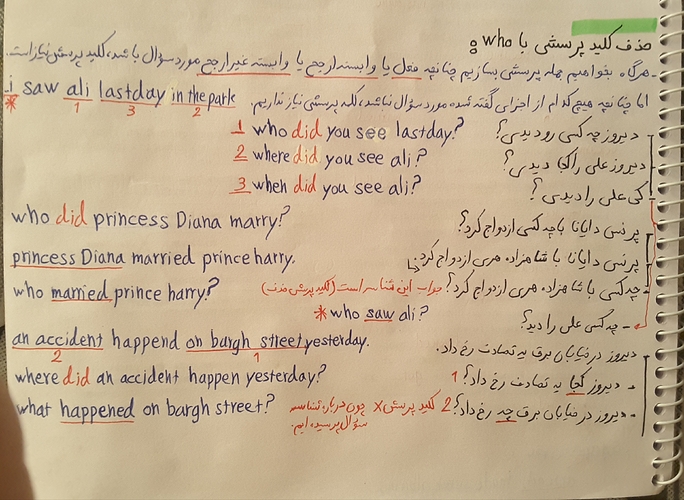 حذف کلید پرسشی با who :
- هرگاه بخواهیم جمله پرسشی بسازیم چنانچه فعل یا وابسته ارجح یا وابسته غیر ارجح مورد سؤال باشد، کلید پرسش نیاز است.
اما چنانچه هیچ کدام از اجزای گفته شده مورد سؤال نباشد، کلید پرسشی نیاز نداریم.
i saw ali lastday in the park
* 1 3 2
1 who did you see lastday? دیروز چه کسی رو دیدی؟
2 where did you see ali? دیروز علی را کجا دیدی؟
3 when did you see ali? کی علی را دیدی؟
who did princess Diana marry? پرنسس دایانا با چه کسی ازدواج کرد؟
princess Diana married prince harry. پرنسس دایانا با شاهزاده هری ازدواج کرد.
who married prince harry? جواب این شناسه است (کلید پرسش حذف) چه کسی با شاهزاده هری ازدواج کرد؟
* who saw ali? - چه کسی علی را دید؟
an accident happend on bargh street yesterday. دیروز در خیابان برق یه تصادف رخ داد.
2 1
where did an accident happen yesterday? 1 دیروز کجا یه تصادف رخ داد؟
what happened on bargh street? دیروز در خیابان برق چه رخ داد؟ 2 کلید پرسش x چون درباره شناسه
سؤال پرسیده ایم.